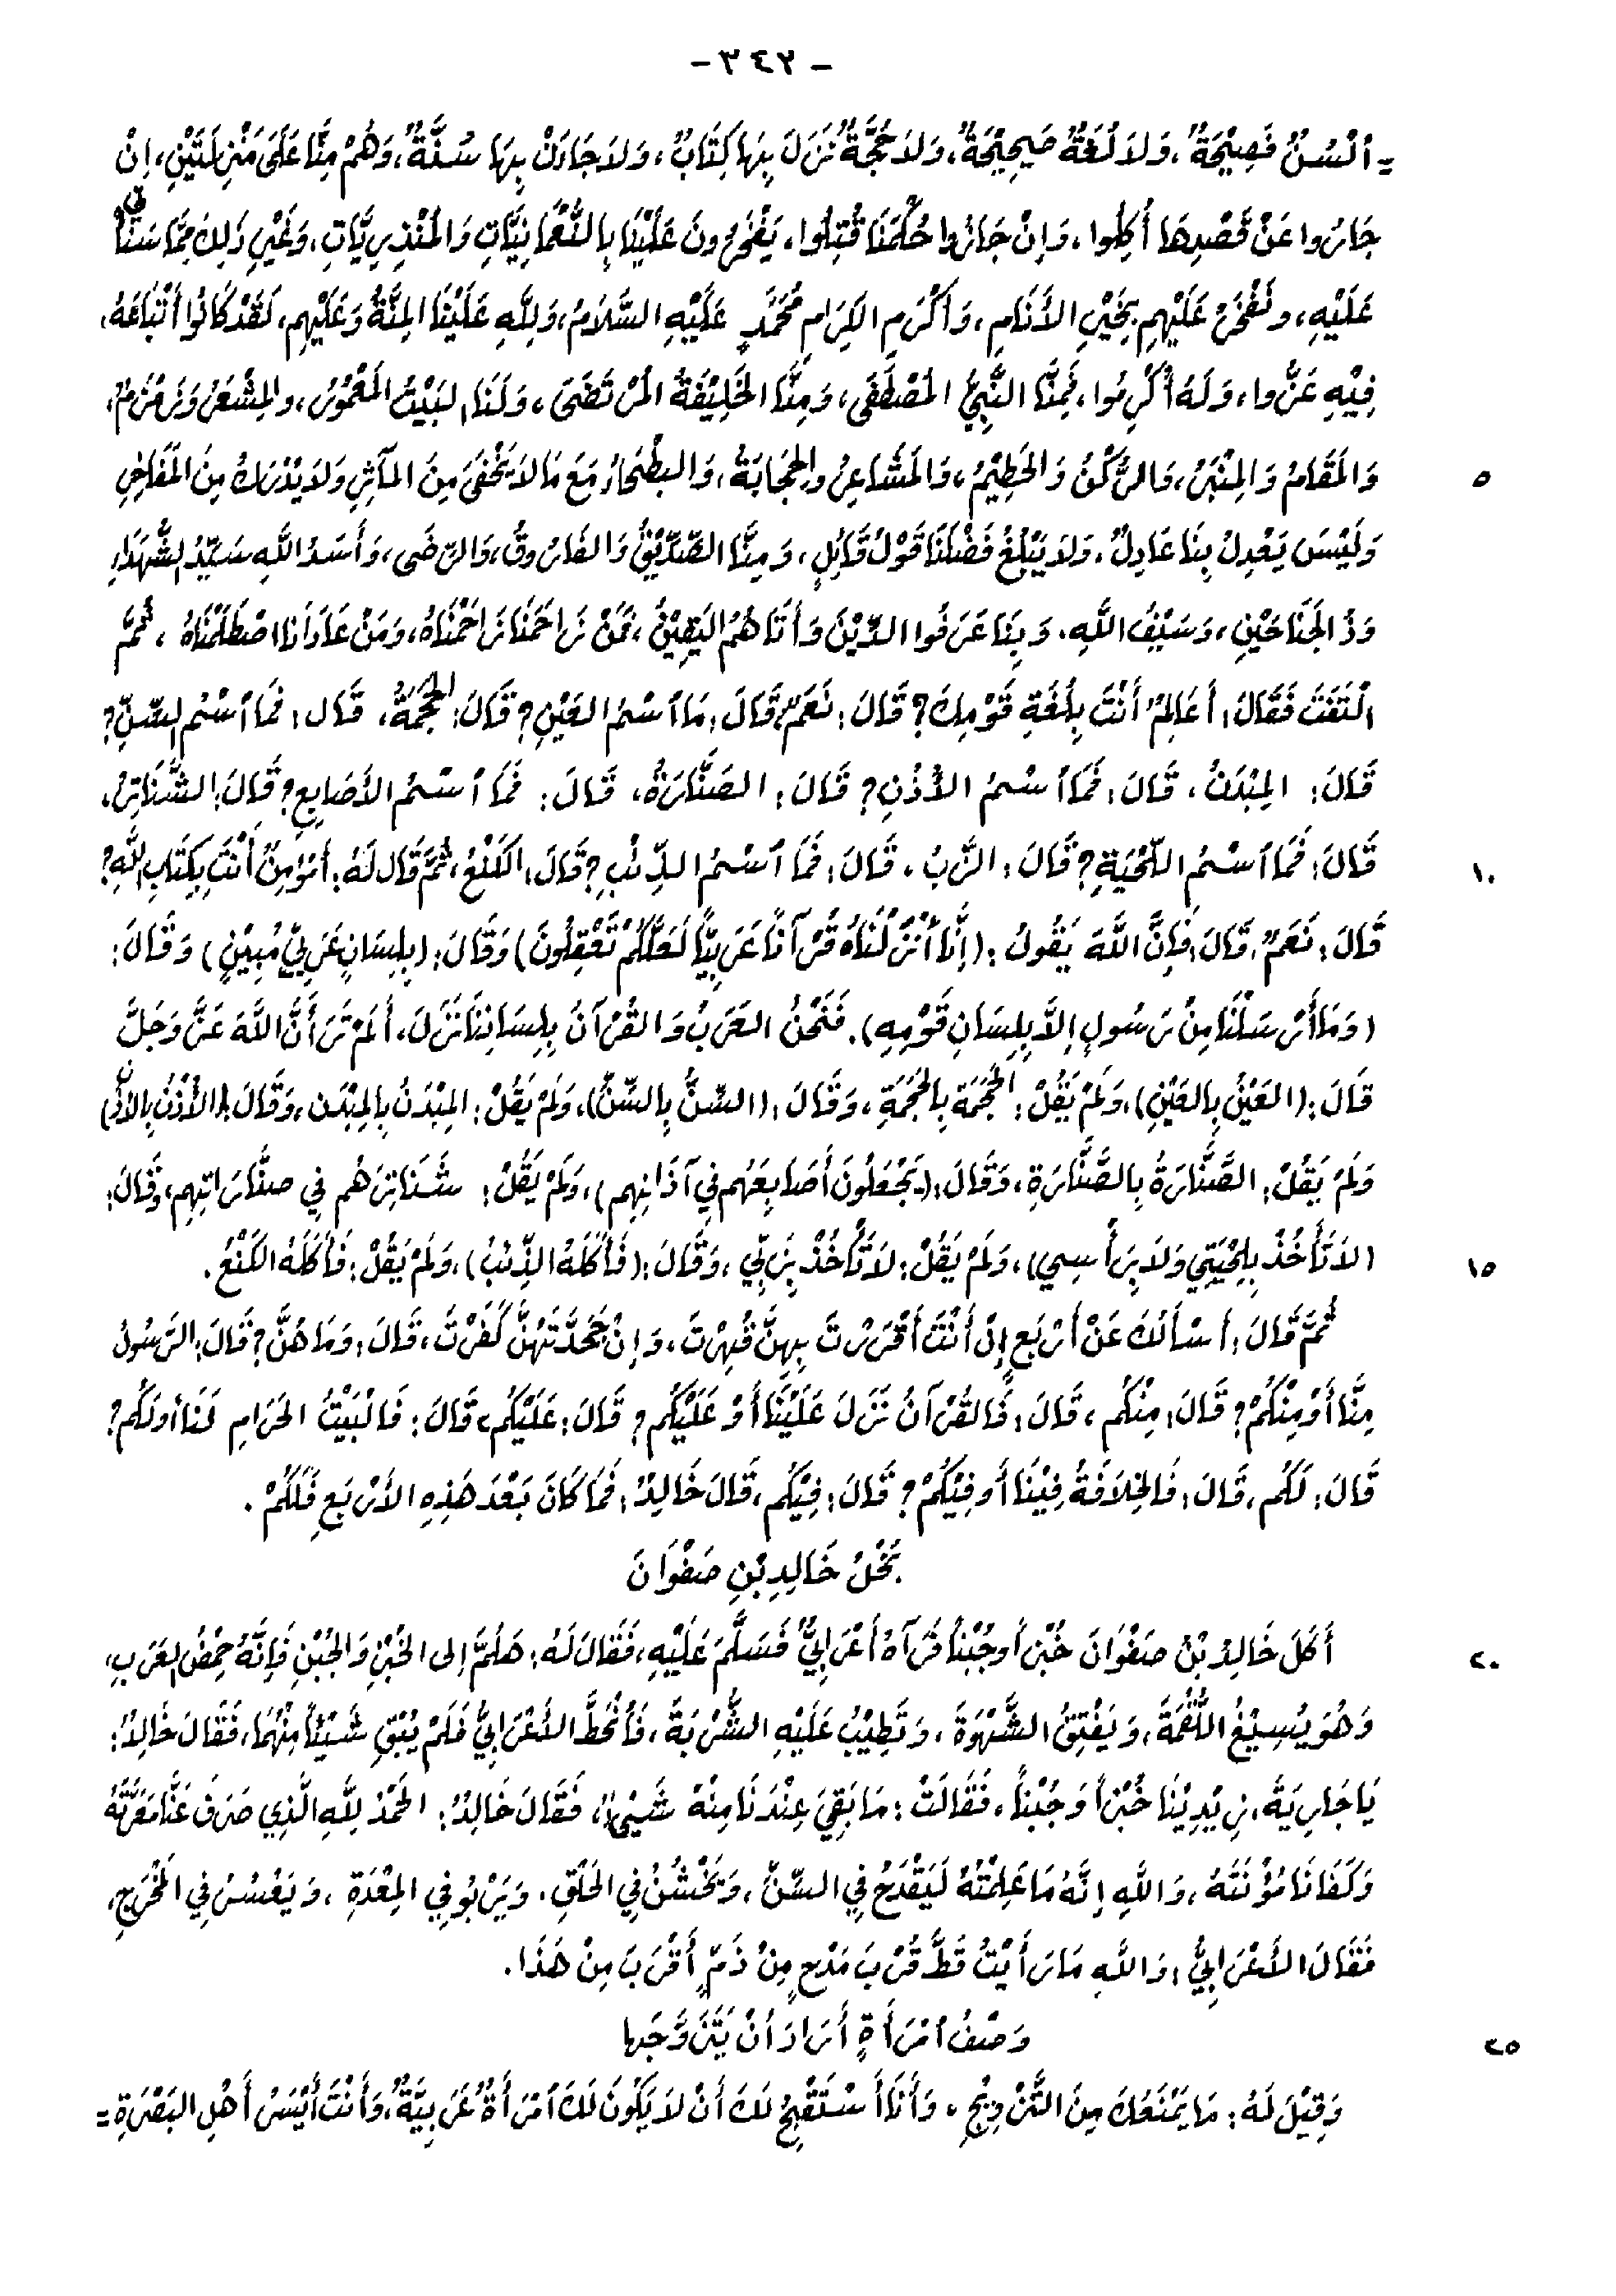 - ٣٤٢ -
= أَلْسُنٌ فَصِيْحَةٌ، وَلاَ لُغَةٌ صَحِيْحَةٌ، وَلاَ حُجَّةٌ نَزَلَ بِهَا كِتَابٌ، وَلاَ جَاءَتْ بِهَا سُنَّةٌ، وَهُمْ مِنَّا عَلَى مَنْزِلَتَيْنِ، إِنْ
جَارُوا عَنْ قَصْدِهَا أُكِلُوا، وَإِنْ جَازُوا حُكْمَنَا قُتِلُوا، يَفْخَرُونَ عَلَيْنَا بِالنُّعْمَانِيَّاتِ وَالمُنْذِرِيَّاتِ، وَغَيْرِ ذَلِكَ مِمَّا سَنَأْتِي
عَلَيْهِ، ونَفْخَرُ عَلَيْهِم بِخَيْرِ الأَنَامِ، وَأَكْرَمِ الكِرَامِ مُحَمَّدٍ عَلَيْهِ السَّلاَمُ، وَلِلَّهِ عَلَيْنَا المِنَّةُ وَعَلَيْهِم، لَقَدْ كَانُوا أَتْبَاعَهُ،
فِيْهِ عَزُّوا، وَلَهُ أُكْرِمُوا، فَمِنَّا النَّبِيُّ المُصْطَفَى، وَمِنَّا الخَلِيْفَةُ المُرْتَضَى، وَلَنَا البَيْتُ المَعْمُوْرُ، والمَشْعَرُ وَزَمْزَمُ،
وَالمَقَامُ وَالمِنْبَرُ، وَالرُّكْنُ وَالحَطِيْمُ، وَالمَشَاعِرُ والحِجَابَةُ، وَالبَطْحَاءُ مَعَ مَا لاَ يَخْفَى مِنَ المَآثِرِ وَلاَ يُدْرَكُ مِنَ المَفَاخِرِ ٥
وَلَيْسَ يَعْدِلُ بِنَا عَادِلٌ، وَلاَ يَبْلُغُ فَضْلَنَا قَوْلُ قَائِلٍ، وَمِنَّا الصِّدِّيْقُ وَالفَارُوقُ، وَالرِّضَى، وَأَسَدُ اللَّهِ سَيِّدُ الشُّهَدَاءِ
وَذُ الجَنَاحَيْنِ، وَسَيْفُ اللَّهِ. وَبِنَا عَرَفُوا الدِّيْنَ وَأَتَاهُمُ اليَقِيْنُ، فَمَنْ زَاحَمَنَا زَاحَمْنَاهُ، وَمَنْ عَادَانَا اصْطَلَمْنَاهُ، ثُمَّ
الْتَفَتَ فَقَالَ: أَعَالِمٌ أَنْتَ بِلُغَةِ قَوْمِكَ؟ قَالَ: نَعَمْ، قَالَ: مَا اسْمُ العَيْنِ؟ قَالَ: الجَحْمَةُ، قَالَ: فَمَا اسْمُ السِّنِّ؟
قَالَ: المِبْدَنُ، قَالَ: فَمَا اسْمُ الأُذُنِ؟ قَالَ: الصِّنَّارَةُ، قَالَ: فَمَا اسْمُ الأَصَابِعِ؟ قَالَ: الشَّنَاتِرُ،
قَالَ: فَمَا اسْمُ اللِّحْيَةِ؟ قَالَ: الزُّبُ، قَالَ: فَمَا اسْمُ الذِّئْبِ؟ قَالَ: الكَنْعُ، ثُمَّ قَالَ لَهُ: أَمُؤْمِنٌ أَنْتَ بِكِتَابِ اللَّهِ؟ ١٠
قَالَ: نَعَمْ، قَالَ: فَإِنَّ اللَّهَ يَقُولُ: (إِنَّا أَنْزَلْنَاهُ قُرْآنًا عَرَبِيًّا لَعَلَّكُمْ تَعْقِلُونَ) وَقَالَ: (بِلِسَانٍ عَرَبِيٍّ مُبِيْنٍ) وَقَالَ:
(وَمَا أَرْسَلْنَا مِنْ رَسُولٍ إِلاَّ بِلِسَانِ قَوْمِهِ). فَنَحْنُ العَرَبُ وَالقُرْآنُ بِلِسَانِنَا نَزَلَ، أَلَمْ تَرَ أَنَّ اللَّهَ عَزَّ وَجَلَّ
قَالَ: (العَيْنُ بِالعَيْنِ)، وَلَمْ يَقُلْ: الجَحْمَةَ بِالجَحْمَةِ، وَقَالَ: (السِّنُّ بِالسِّنِّ)، وَلَمْ يَقُلْ: المِبْدَنُ بِالمِبْدَنِ، وَقَالَ: (الأُذُنُ بِالأُذُنِ)
وَلَمْ يَقُلْ: الصِّنَّارَةُ بِالصِّنَّارَةِ، وَقَالَ: (يَجْعَلُونَ أَصَابِعَهُم فِي آذَانِهِم)، وَلَمْ يَقُلْ: شَنَاتِرَهُم فِي صنَّارَاتِهِم، وقَالَ:
(لاَ تَأْخُذْ بِلِحْيَتِي وَلاَ بِرَأْسِي)، وَلَمْ يَقُلْ: لاَ تَأْخُذْ بِزُبِّي، وَقَالَ: (فَأَكَلَهُ الذِّئْبُ)، وَلَمْ يَقُلْ: فَأَكَلَهُ الكَنْعُ. ١٥
ثُمَّ قَالَ: أَسْأَلُكَ عَنْ أَرْبَعٍ إِنْ أَنْتَ أَقْرَرْتَ بِهِنَّ قُهِرْتَ، وَإِنْ جَحَدْتَهُنَّ كَفَرْتَ، قَالَ: وَمَا هُنَّ؟ قَالَ: الرَّسُولُ
مِنَّا أَوْ مِنْكُمْ؟ قَالَ: مِنْكُم، قَالَ: فَالقُرْآنُ نَزَلَ عَلَيْنَا أَوْ عَلَيْكُم؟ قَالَ: عَلَيْكُم، قَالَ: فَالْبَيْتُ الحَرَامِ لَنَا أَولَكُم؟
قَالَ: لَكُم، قَالَ: فَالخِلاَفَةُ فِيْنَا أَو فِيْكُمْ؟ قَالَ: فِيْكُم، قَالَ خَالِدٌ: فَمَا كَانَ بَعْدَ هَذِهِ الأَرْبَعِ فَلَكُمْ.
بُخْلُ خَالِدِ بْنِ صَفْوَانَ
أَكَلَ خَالِدُ بْنُ صَفْوَانَ خُبْزاً وجُبْناً فَرَآهُ أَعْرَابِيٌّ فَسَلَّمَ عَلَيْهِ، فَقَالَ لَهُ: هَلُمَّ إِلى الخُبْزِ وَالجُبْنِ فَإِنَّهُ حِمْضُ العَرَبِ، ٢٠
وَهُوَ يُسِيْغُ اللُّقْمَةَ، وَيَفْتِقُ الشَّهْوَةَ، وَتَطِيْبُ عَلَيْهِ الشَّرْبَةُ، فَانْحَطَّ الأَعْرَابِيُّ فَلَمْ يُبْقِ شَيْئاً مِنْهُمَا، فَقَالَ خَالِدٌ:
يَا جَارِيَةُ، زِيْدِيْنَا خُبْزاً وَجُبْناً، فَقَالَتْ: مَا بَقِيَ عِنْدَنَا مِنْهُ شَيْءٌ، فَقَالَ خَالِدٌ: الحَمْدُ لِلَّهِ الَّذِي صَرَفَ عَنَّا مَعَرَّتَهُ
وَكَفَانَا مُؤْنَتَهُ، وَاللَّهِ إِنَّهُ مَا عَلِمْتُهُ لَيَقْدَحُ فِي السِّنِّ، وَيَخْشُنُ فِي الحَلْقِ، وَيَرْبُو فِي المِعْدَةِ، وَيَعْسُرُ فِي المَخْرَجِ،
فَقَالَ الأَعْرَابِيُّ: وَاللَّهِ مَا رَأَيْتُ قَطُّ قُرْبَ مَدْحٍ مِنْ ذَمٍّ أَقْرَبَ مِنْ هَذَا.
وَصْفُ امْرَأَةٍ أَرَادَ أَنْ يَتَزَوَّجَها ٢٥
وَقِيْلَ لَهُ: مَا يَمْنَعُكَ مِنَ التَّزْوِيْجِ، وَأَنَا أَسْتَقْبِحُ لَكَ أَنْ لاَ يَكُونَ لَكَ امْرَأَةٌ عَرَبِيَّةٌ، وَأَنْتَ أَيْسَرُ أَهْلِ البَصْرَةِ =